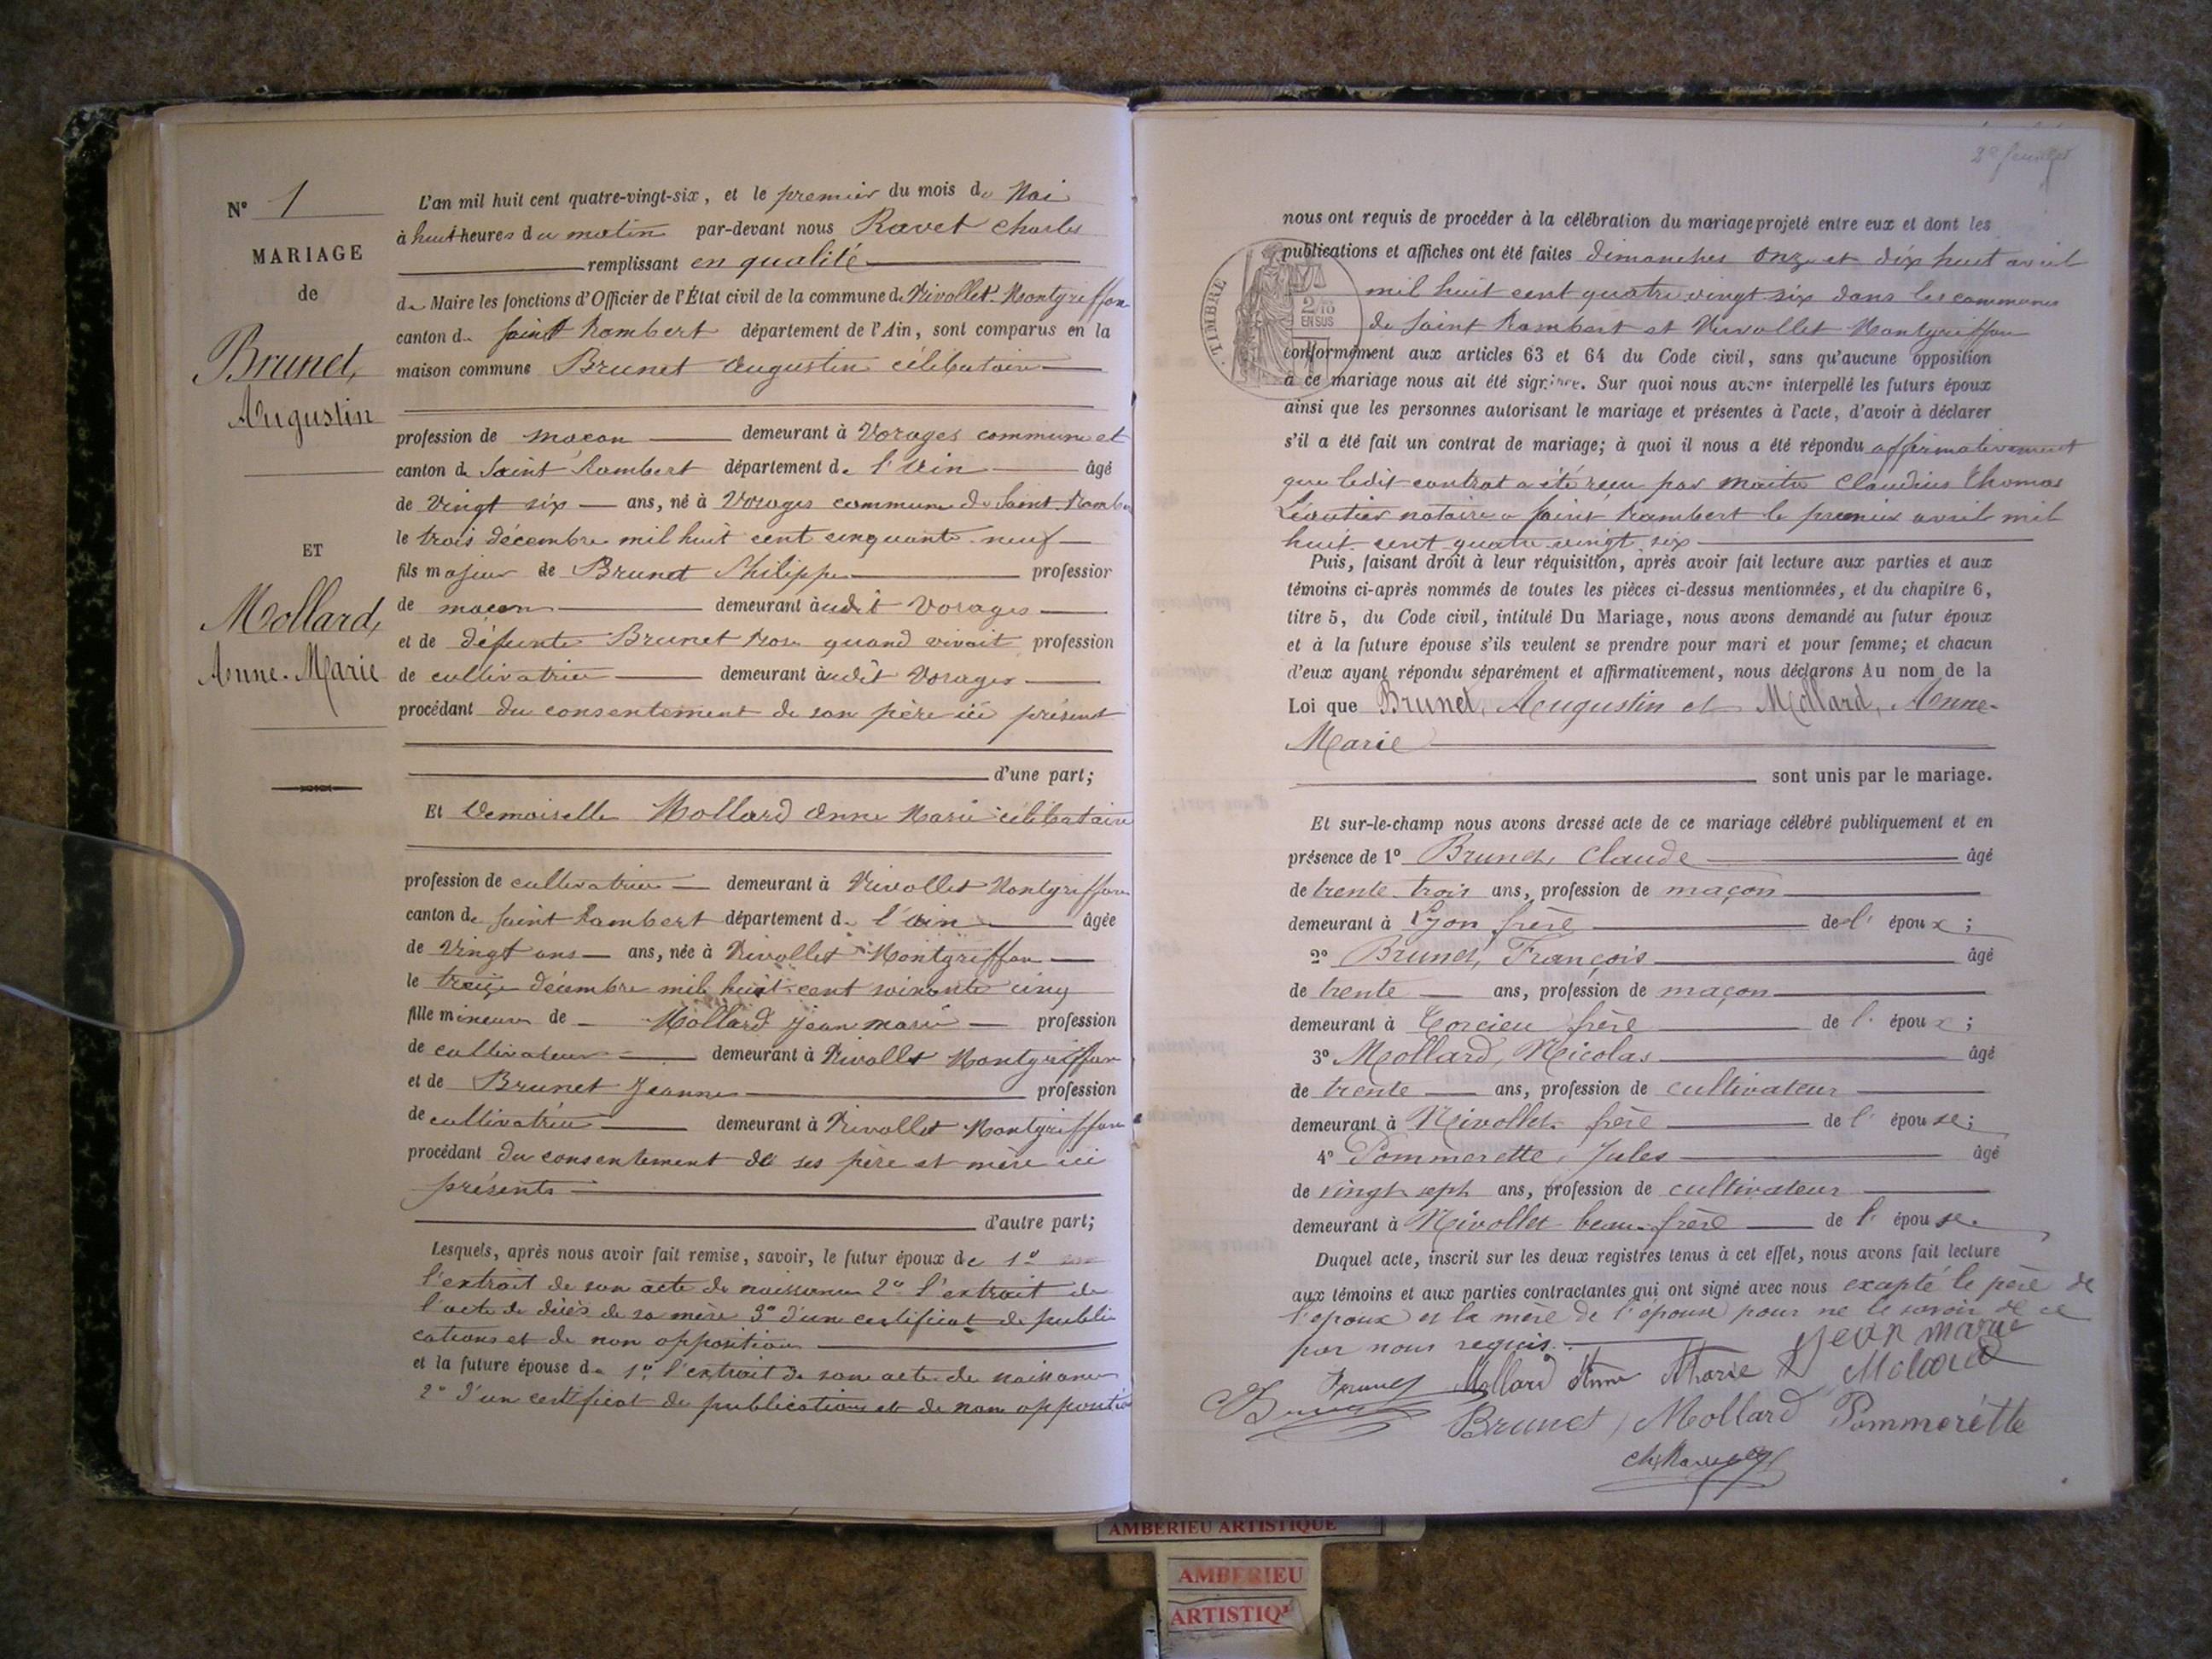 N° 1
MARIAGE
de
Brunet,
Augustin
ET
Mollard,
Anne-Marie
L'an mil huit cent quatre-vingt-six, et le premier du mois de Mai
à huit heures du matin par-devant nous Ravet Charles
remplissant en qualité
de Maire les fonctions d'Officier de l'État civil de la commune de Nivollet-Montgriffon
canton de Saint Rambert département de l'Ain, sont comparus en la
maison commune Brunet Augustin célibataire
profession de maçon demeurant à Vorages commune et
canton de Saint Rambert département de l'Ain âgé
de vingt six ans, né à Vorages commune de Saint-Rambe
le trois décembre mil huit cent cinquante-neuf
fils majeur de Brunet Philippe profession
de maçon demeurant audit Vorages
et de défunte Brunet Rose quand vivait profession
de cultivatrice demeurant audit Vorages
procédant du consentement de son père ici présent
d'une part;
Et Demoiselle Mollard Anne Marie célibataire
profession de cultivatrice demeurant à Nivollet Montgriffon
canton de Saint Rambert département de l'Ain âgée
de vingt ans ans, née à Nivollet Montgriffon
le treize décembre mil huit cent soixante cinq
fille mineure de Mollard Jean marie profession
de cultivateur demeurant à Nivollet Montgriffon
et de Brunet Jeanne profession
de cultivatrice demeurant à Nivollet Montgriffon
procédant du consentement de ses père et mère ici
présents
d'autre part;
Lesquels, après nous avoir fait remise, savoir, le futur époux de 1°
l'extrait de son acte de naissance 2° l'extrait de
l'acte de décès de sa mère 3° d'un certificat de publi
cations et de non opposition
et la future épouse de 1° l'extrait de son acte de naissance
2° d'un certificat de publications et de non oppositio
2e feuillet
nous ont requis de procéder à la célébration du mariage projeté entre eux et dont les
publications et affiches ont été faites dimanches onze et dix huit avril
mil huit cent quatre vingt six dans les communes
de Saint Rambert et Nivollet Montgriffon
TIMBRE
2/10
EN SUS
conformément aux articles 63 et 64 du Code civil, sans qu'aucune opposition
à ce mariage nous ait été signifiée. Sur quoi nous avons interpellé les futurs époux
ainsi que les personnes autorisant le mariage et présentes à l'acte, d'avoir à déclarer
s'il a été fait un contrat de mariage; à quoi il nous a été répondu affirmativement
que ledit contrat a été reçu par maitre Claudius Thomas
Léautier notaire a Saint Rambert le premier avril mil
huit cent quatre vingt six
Puis, faisant droit à leur réquisition, après avoir fait lecture aux parties et aux
témoins ci-après nommés de toutes les pièces ci-dessus mentionnées, et du chapitre 6,
titre 5, du Code civil, intitulé Du Mariage, nous avons demandé au futur époux
et à la future épouse s'ils veulent se prendre pour mari et pour femme; et chacun
d'eux ayant répondu séparément et affirmativement, nous déclarons Au nom de la
Loi que Brunet, Augustin et Mollard, Anne-
Marie
sont unis par le mariage.
Et sur-le-champ nous avons dressé acte de ce mariage célébré publiquement et en
présence de 1° Brunet, Claude âgé
de trente trois ans, profession de maçon
demeurant à Lyon frère de l' époux;
2° Brunet, François âgé
de trente ans, profession de maçon
demeurant à Torcieu frère de l' époux;
3° Mollard, Nicolas âgé
de trente ans, profession de cultivateur
demeurant à Nivollet frère de l' épouse;
4° Pommerette, Jules âgé
de vingt sept ans, profession de cultivateur
demeurant à Nivollet beau-frère de l' épouse.
Duquel acte, inscrit sur les deux registres tenus à cet effet, nous avons fait lecture
aux témoins et aux parties contractantes qui ont signé avec nous excepté le père de
l'époux et la mère de l'épouse pour ne le savoir de ce
par nous requis.
Brunet Mollard Anne Marie Jean marie
Molard
Brunet Brunet Mollard Pommerétte
Ch. Ravet
AMBERIEU ARTISTIQUE
AMBERIEU
ARTISTIQ